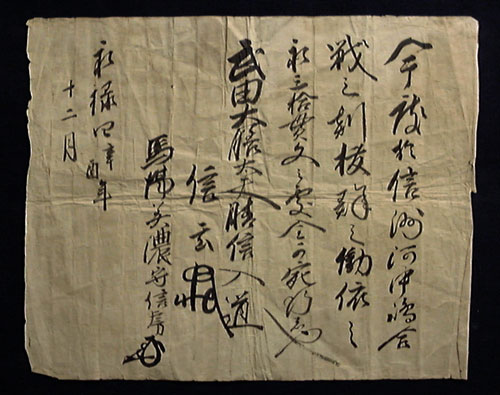 今度於信洲河中嶋合
戦之刻抜群之働依之
永三拾貫文之處令可宛行
武田大膳大夫晴信入道
信玄
馬場美濃守信房
永禄四辛酉年
十二月